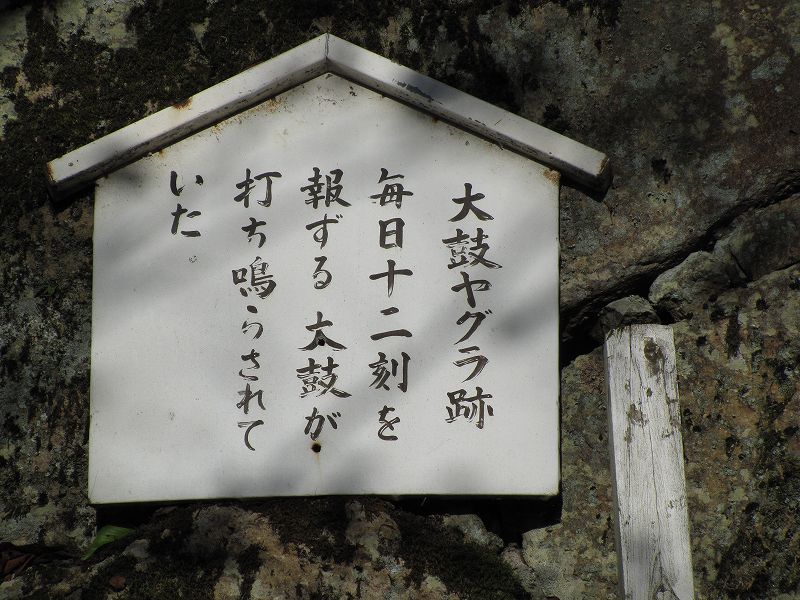 大鼓ヤグラ跡
毎日十二刻を
報ずる太鼓が
打ち鳴らされて
いた。